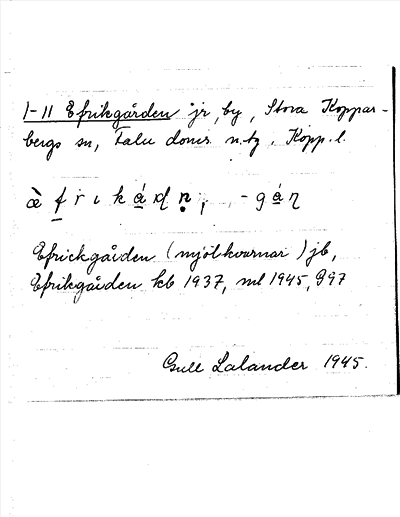 1-11 Efrikgården jr, by, Stora Koppar-
bergs sn, Falu doms. n. tg. Kopp. l.
Efrickgården (mjölkvarnar) jb,
Efrikgården kb 1937, ml 1945, 997
Gull Lalander 1945.